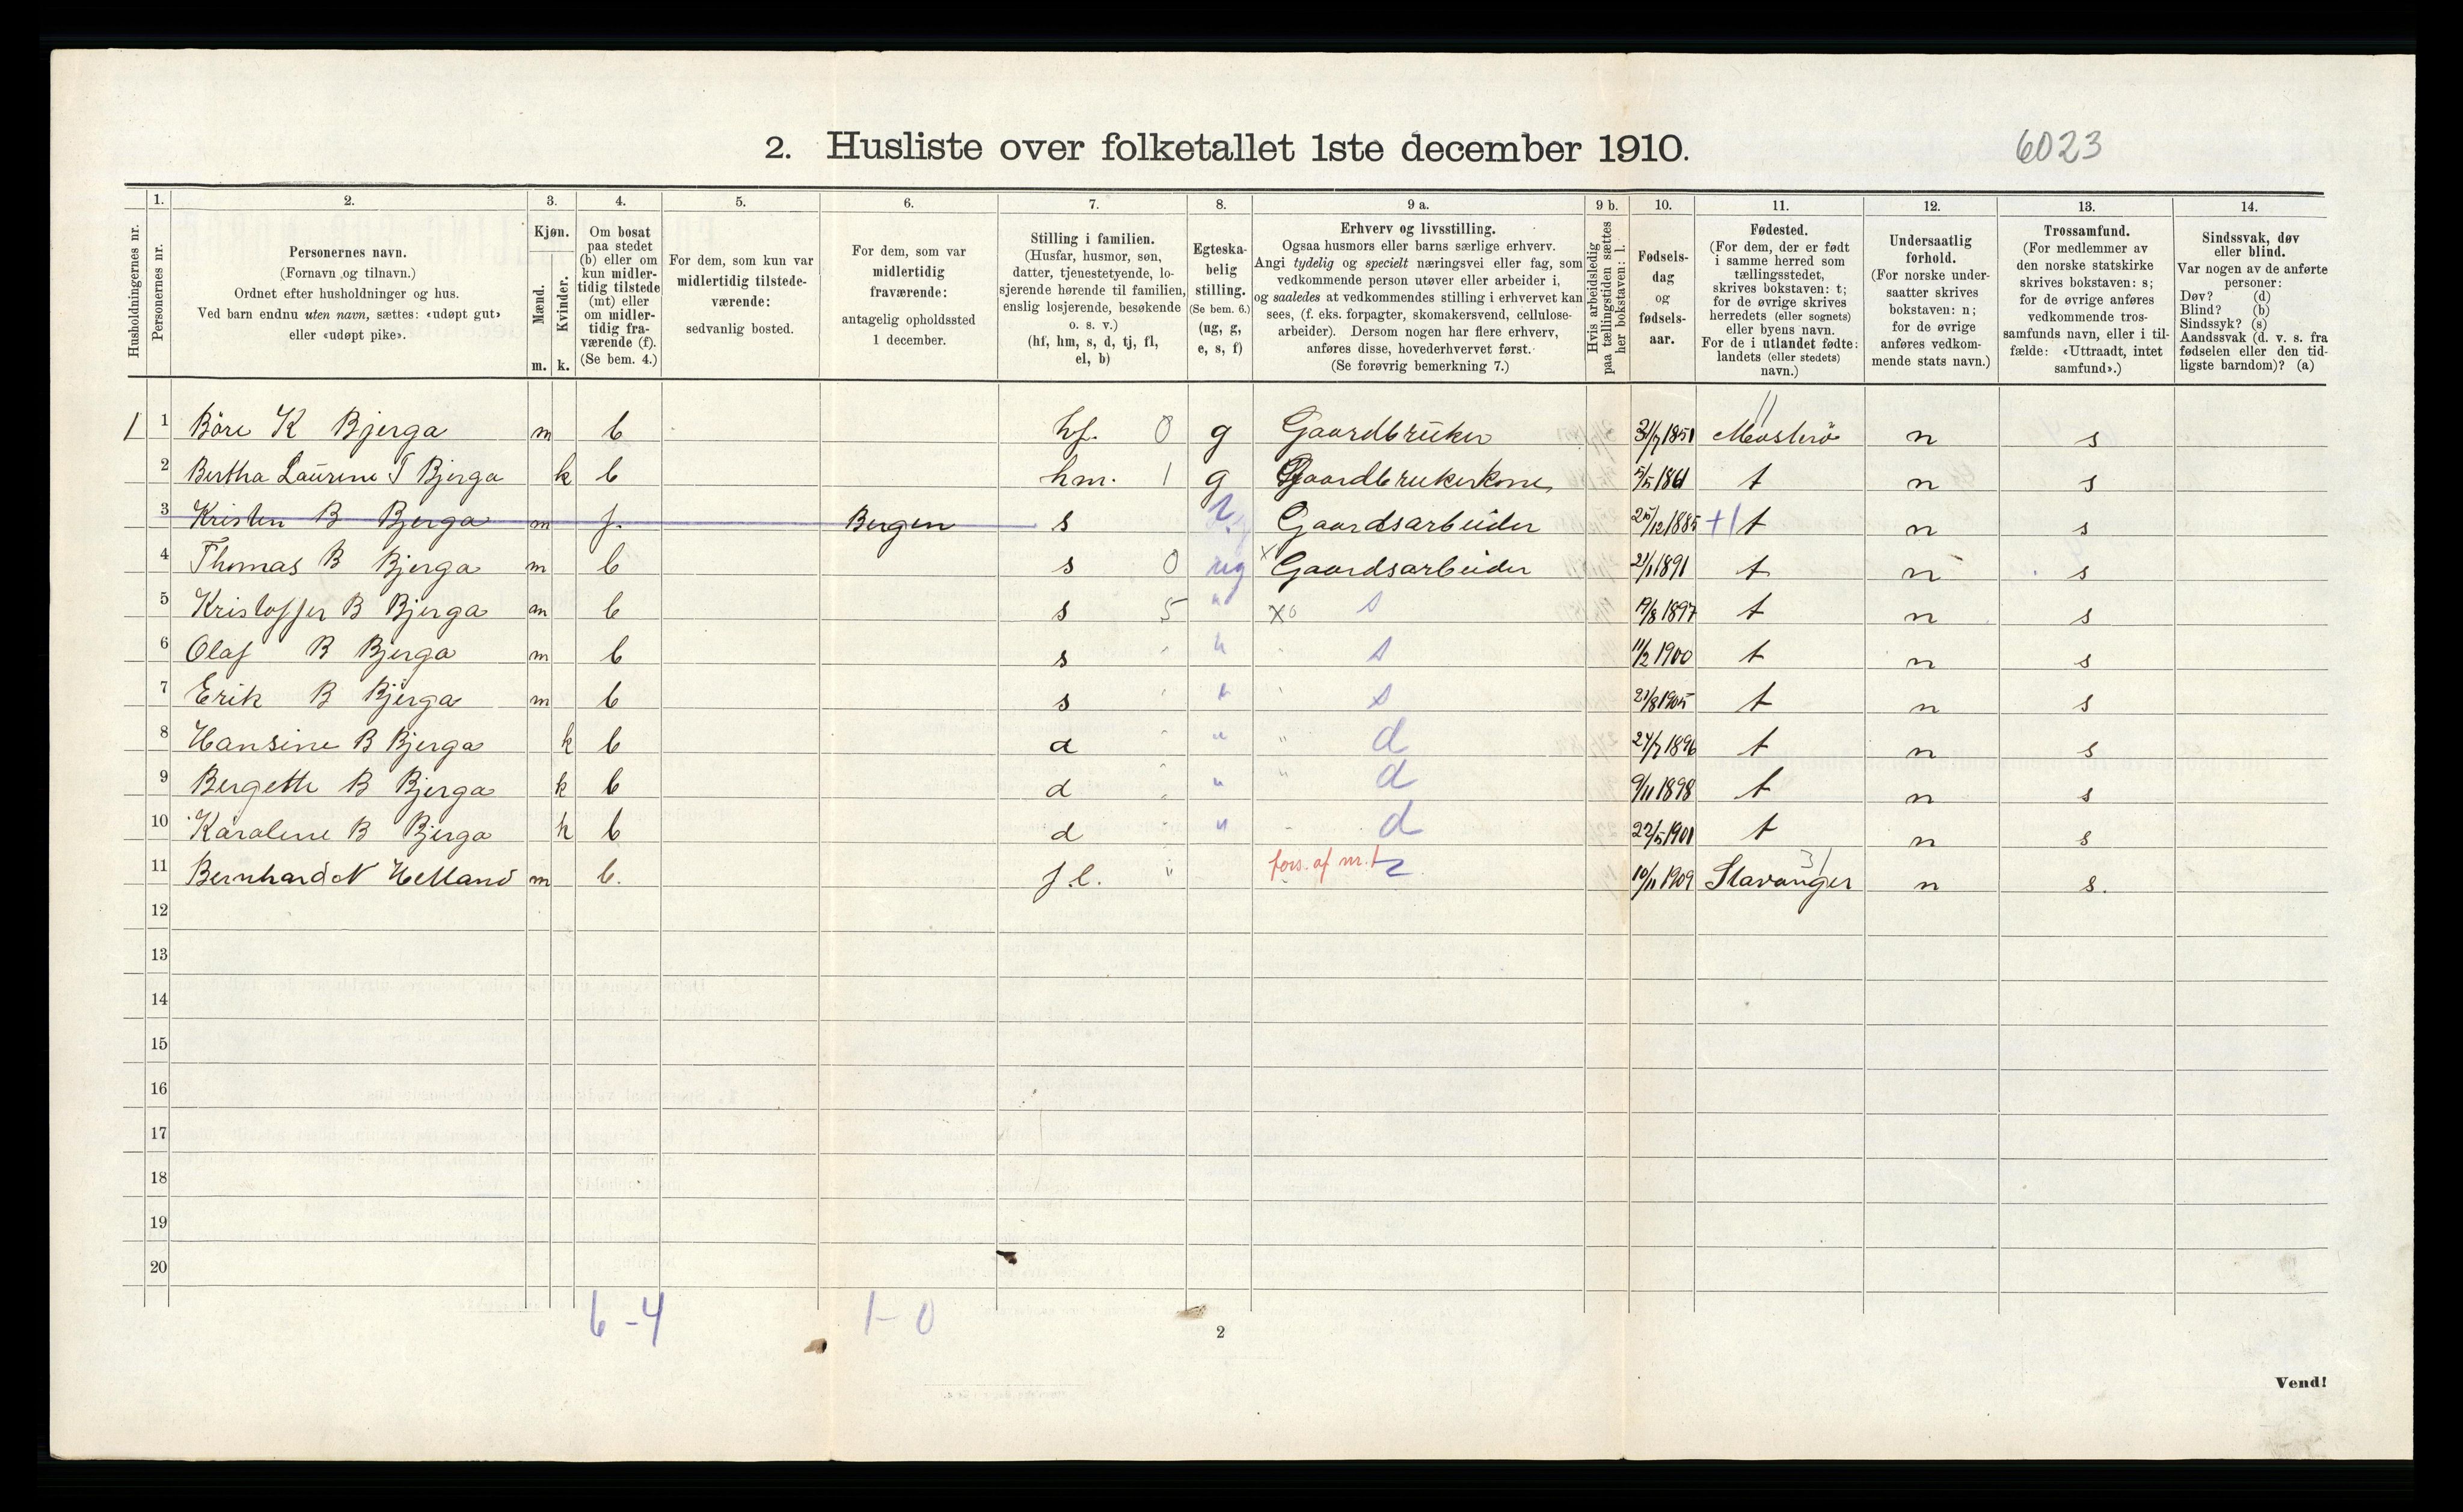 2. Husliste over folketallet 1ste december 1910.
6023
Husholdningernes nr.
1.
Personernes nr.
2.
Personernes navn.
(Fornavn og tilnavn.)
Ordnet efter husholdninger og hus.
Ved barn endnu uten navn, sættes: «udøpt gut»
eller «udøpt pike».
3.
Kjøn.
Mænd.
Kvinder.
m. k.
4.
Om bosat
paa stedet
(b) eller om
kun midler-
tidig tilstede
(mt) eller
om midler-
tidig fra-
værende (f).
(Se bem. 4.)
5.
For dem, som kun var
midlertidig tilstede-
værende:
sedvanlig bosted.
6.
For dem, som var
midlertidig
fraværende:
antagelig opholdssted
1 december.
7.
Stilling i familien.
(Husfar, husmor, søn,
datter, tjenestetyende, lo-
sjerende hørende til familien,
enslig losjerende, besøkende
o. s. v.)
(hf, hm, s, d, tj, fl,
el, b)
8.
Egteska-
belig
stilling.
(Se bem. 6.)
(ug, g,
e, s, f)
9 a.
Erhverv og livsstilling.
Ogsaa husmors eller barns særlige erhverv.
Angi tydelig og specielt næringsvei eller fag, som
vedkommende person utøver eller arbeider i,
og saaledes at vedkommendes stilling i erhvervet kan
sees, (f. eks. forpagter, skomakersvend, cellulose-
arbeider). Dersom nogen har flere erhverv,
anføres disse, hovederhvervet først.
(Se forøvrig bemerkning 7.)
9 b.
Hvis arbeidsledig
paa tællingstiden sættes
her bokstaven: l.
10.
Fødsels-
dag
og
fødsels-
aar.
11.
Fødested.
(For dem, der er født
i samme herred som
tællingsstedet,
skrives bokstaven: t;
for de øvrige skrives
herredets (eller sognets)
eller byens navn.
For de i utlandet fødte:
landets (eller stedets)
navn.)
12.
Undersaatlig
forhold.
(For norske under-
saatter skrives
bokstaven: n;
for de øvrige
anføres vedkom-
mende stats navn.)
13.
Trossamfund.
(For medlemmer av
den norske statskirke
skrives bokstaven: s;
for de øvrige anføres
vedkommende tros-
samfunds navn, eller i til-
fælde: «Uttraadt, intet
samfund».)
14.
Sindssvak, døv
eller blind.
Var nogen av de anførte
personer:
Døv? (d)
Blind? (b)
Sindssyk? (s)
Aandssvak (d. v. s. fra
fødselen eller den tid-
ligste barndom)? (a)
1 1 Båre K Bjerga m b hf. 0 g Gaardbruker 31/7 1851 Mosterö n s
2 Bertha Laurine T Bjerga k b hm. 1 g Gaardbrukerkone 5/5 1861 t n s
3 Kristen B Bjerga m f. Bergen s Gaardsarbeider 25/12 1885 +1 t n s
4 Thomas B Bjerga m b s 0 ug x Gaardsarbeider 21/1 1891 t n s
5 Kristoffer B Bjerga m b s 5 " xo s 19/8 1897 t n s
6 Olaf B Bjerga m b s " " s 11/2 1900 t n s
7 Erik B Bjerga m b s " " s 21/8 1905 t n s
8 Hansine B Bjerga k b d " " d 24/7 1896 t n s
9 Bergette B Bjerga k b d " " d 9/11 1898 t n s
10 Karoline B Bjerga k b d " " d 22/5 1901 t n s
11 Bernhard N Helland m b. f.l. " fors. af nr. 1 10/11 1909 Stavanger n s.
12
13
14
15
16
17
18
19
20
6-4 1-0
2
Vend!